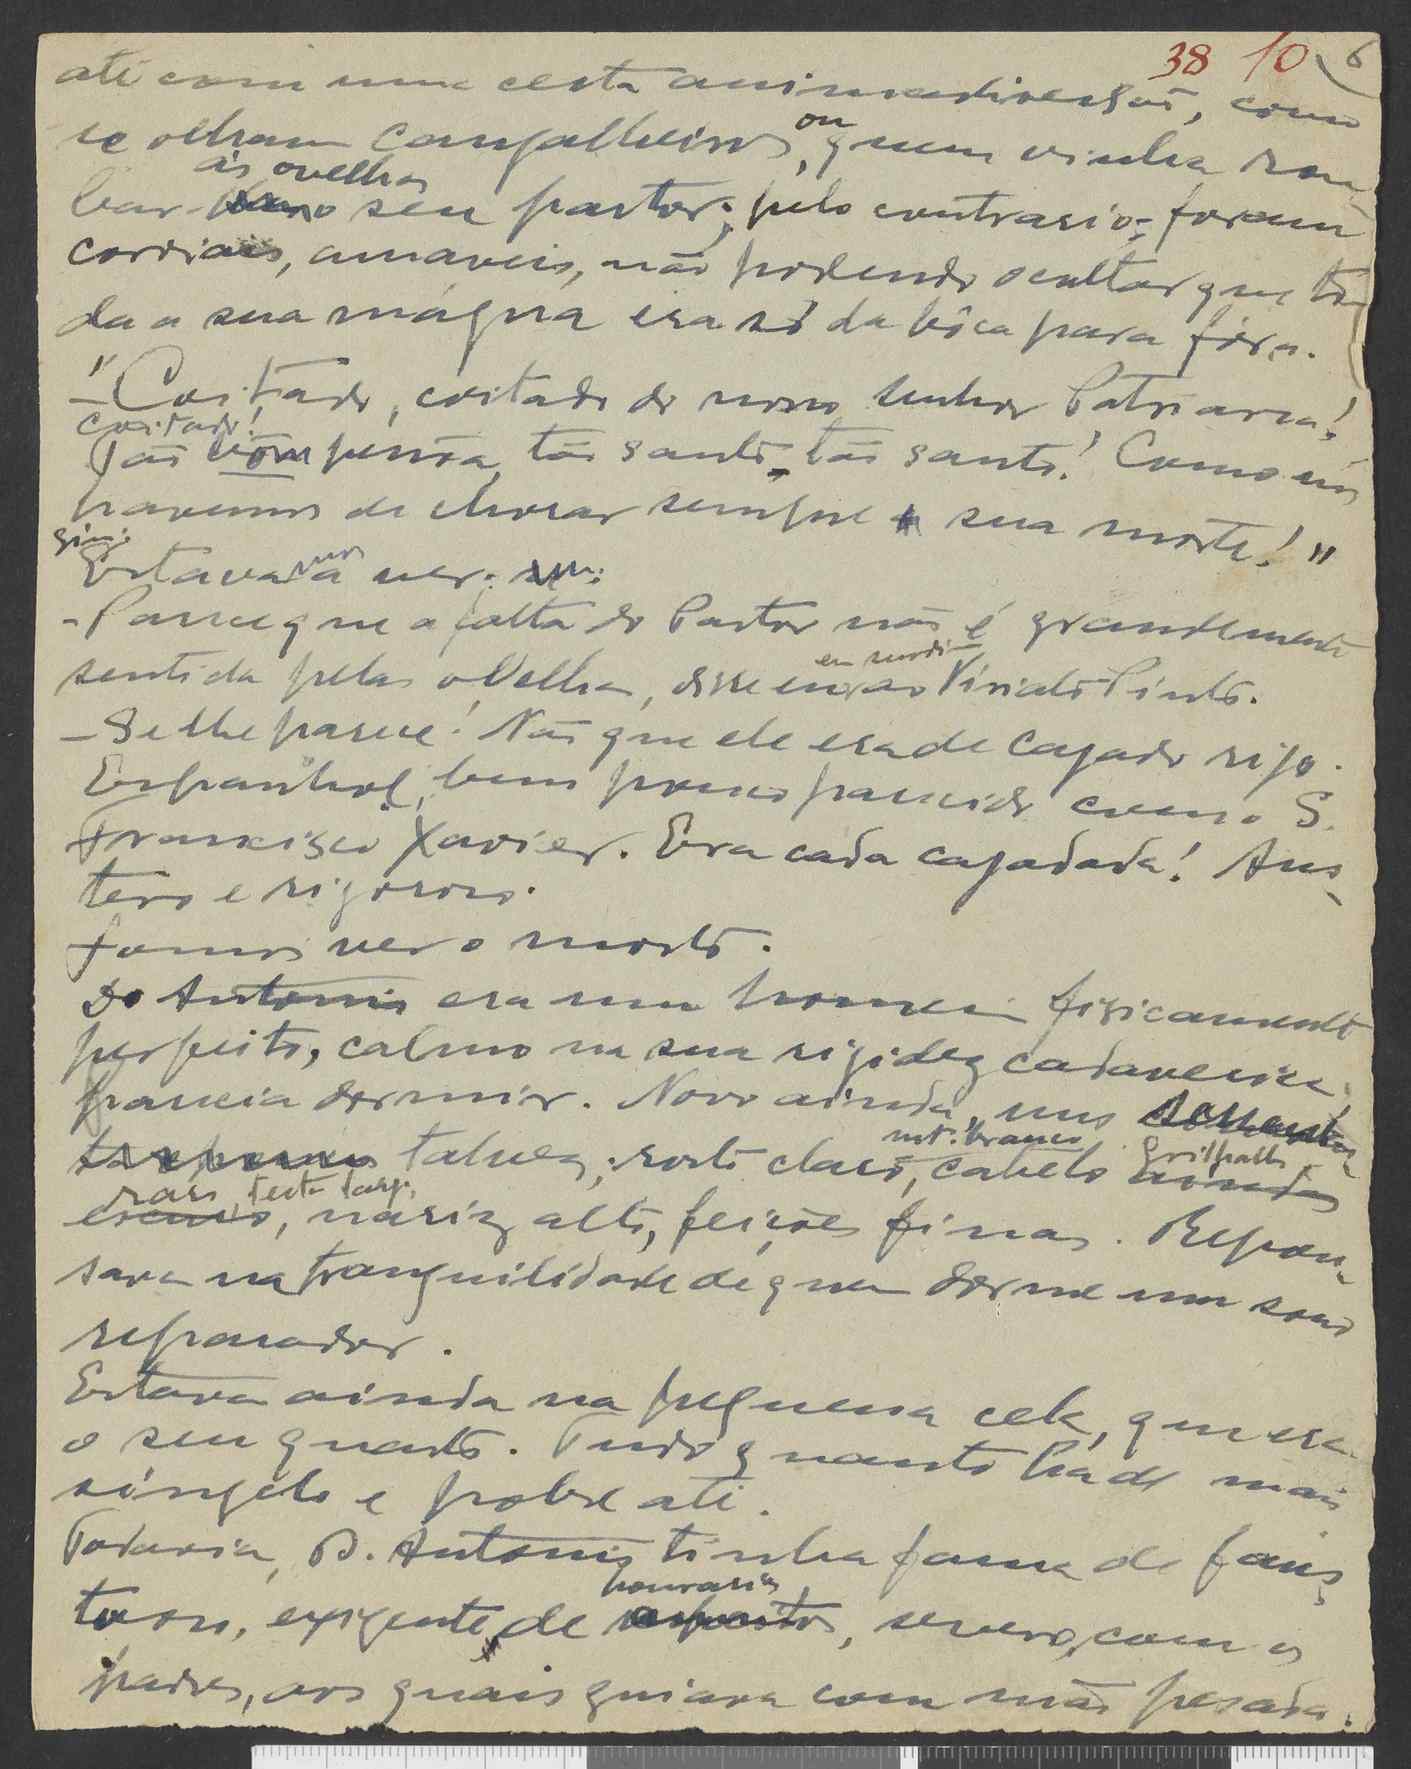 38 10 6
até com uma certa animadversão, como
se olham cangalheiros, ou quem vinha rou-
bar ás ovelhas o seu pastor; pelo contrario; foram
cordiais, amaveis, não podendo ocultar que to-
da a sua mágua era só da bôca para fóra.
-"Coitado, coitado do nosso senhor Patriarca!
coitado!
Tão bom pessôa, tão santo, tão santo! Como nós
havemos de chorar sempre a sua morte!"
Estava-se a ver:
- Parece que a falta do Pastor não é grandemente
sentida pelas ovelhas, disse eu em surdina ao Viriato Pinto.
- Se lhe parece! Não que ele era de cajado rijo.
Espanhol, bem pouco parecido com o S.
Francisco Xavier. Era cada cajadada! Aus-
tero e rigoroso.
Fomos ver o morto.
D. Antonio era um homem fisicamente
perfeito, calmo na sua rigidez cadaverica,
parecia dormir. Novo ainda, uns
talvez; rosto claro, muito branco, cabelo grisalho
raso, testa larga,
nariz alto, feições finas. Repou-
sava na tranquilidade de quem dorme um sono
reparador.
Estava ainda na pequena cela, que era
o seu quarto. Tudo quanto ha de mais
singelo e pobre até.
Todavia, D. Antonio tinha fama de faus-
toso, exigente de honrarias, severo com os
padres, aos quais guiava com mão pesada.